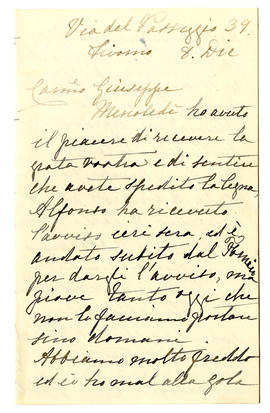 Via del Passeggio 39.
8. Dic
Caro Giuseppe
Mercoledì ho avuto
il piacere di ricevere la
grata vostra e di sentire
che avete spedito la legna,
Alfonso ha ricevuto
l'avviso ieri sera, ed è
andato subito dal
per dargli l'avviso, ma
piove tanto oggi che
non la facciamo portare
sino domani
Abbiamo molto freddo
ed io ho mal alla gola